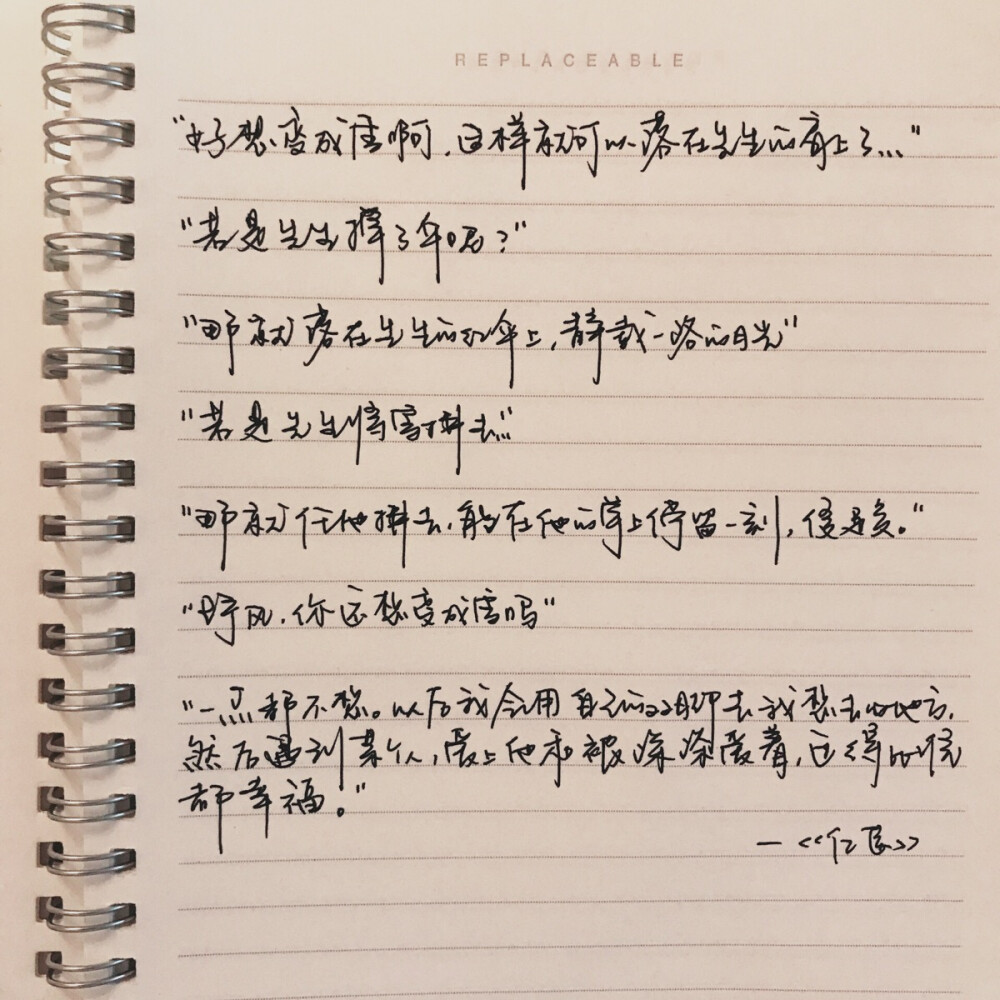 REPLACEABLE
"好想变成雪啊，这样就可以落在先生的肩上了..."
"若是先生撑了伞呢？"
"那就落在先生的红伞上，静载一路的月光"
"若是先生将雪抖去"
"那就任他抖去，能在他的掌上停留一刻，便足矣。"
"野风，你还想变成雪吗"
"一点都不想。以后我会用自己的双脚去我想去的地方，
然后遇到某个人，爱上他和被深深爱着，过得比谁
都幸福。"
—<<仁医>>